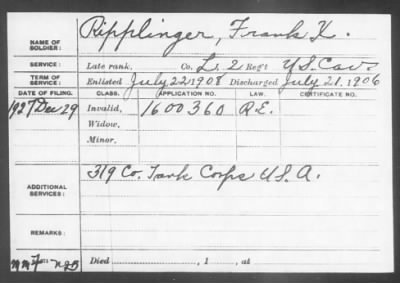 NAME OF SOLDIER: Ripplinger, Frank X.
SERVICE: Late rank, Co. L, 2 Regt U.S. Cav.
TERM OF SERVICE: Enlisted July 22 1908 Discharged July 21, 1906
DATE OF FILING. CLASS. APPLICATION NO. LAW. CERTIFICATE NO.
1927 Dec 29 Invalid, 1600360 R.E.
Widow,
Minor,
ADDITIONAL SERVICES: 319 Co. Tank Corps U.S.A.
REMARKS:
Died , 1 , at